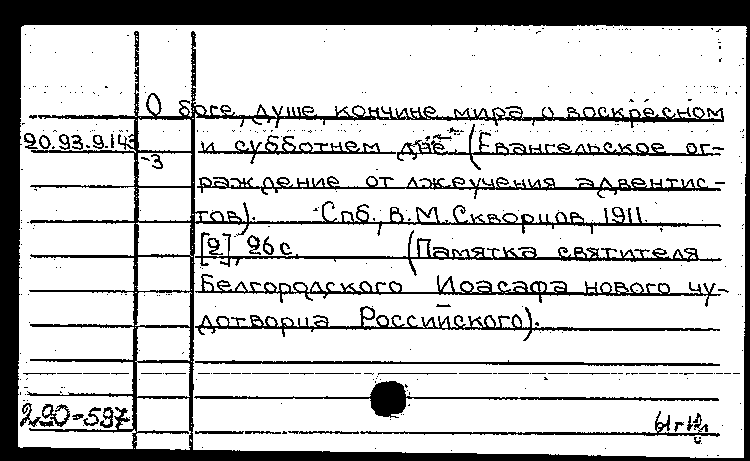 О боге, душе, кончине мира, о воскресном
20.93.9.143 и субботнем дне. (Евангельское ог-
-3
раждение от лжеучения адвентис-
тов). Спб., В.М. Скворцов, 1911.
[2], 26 с. (Памятка святителя
Белгородского Иоасафа нового чу-
дотворца Российского).
220-597